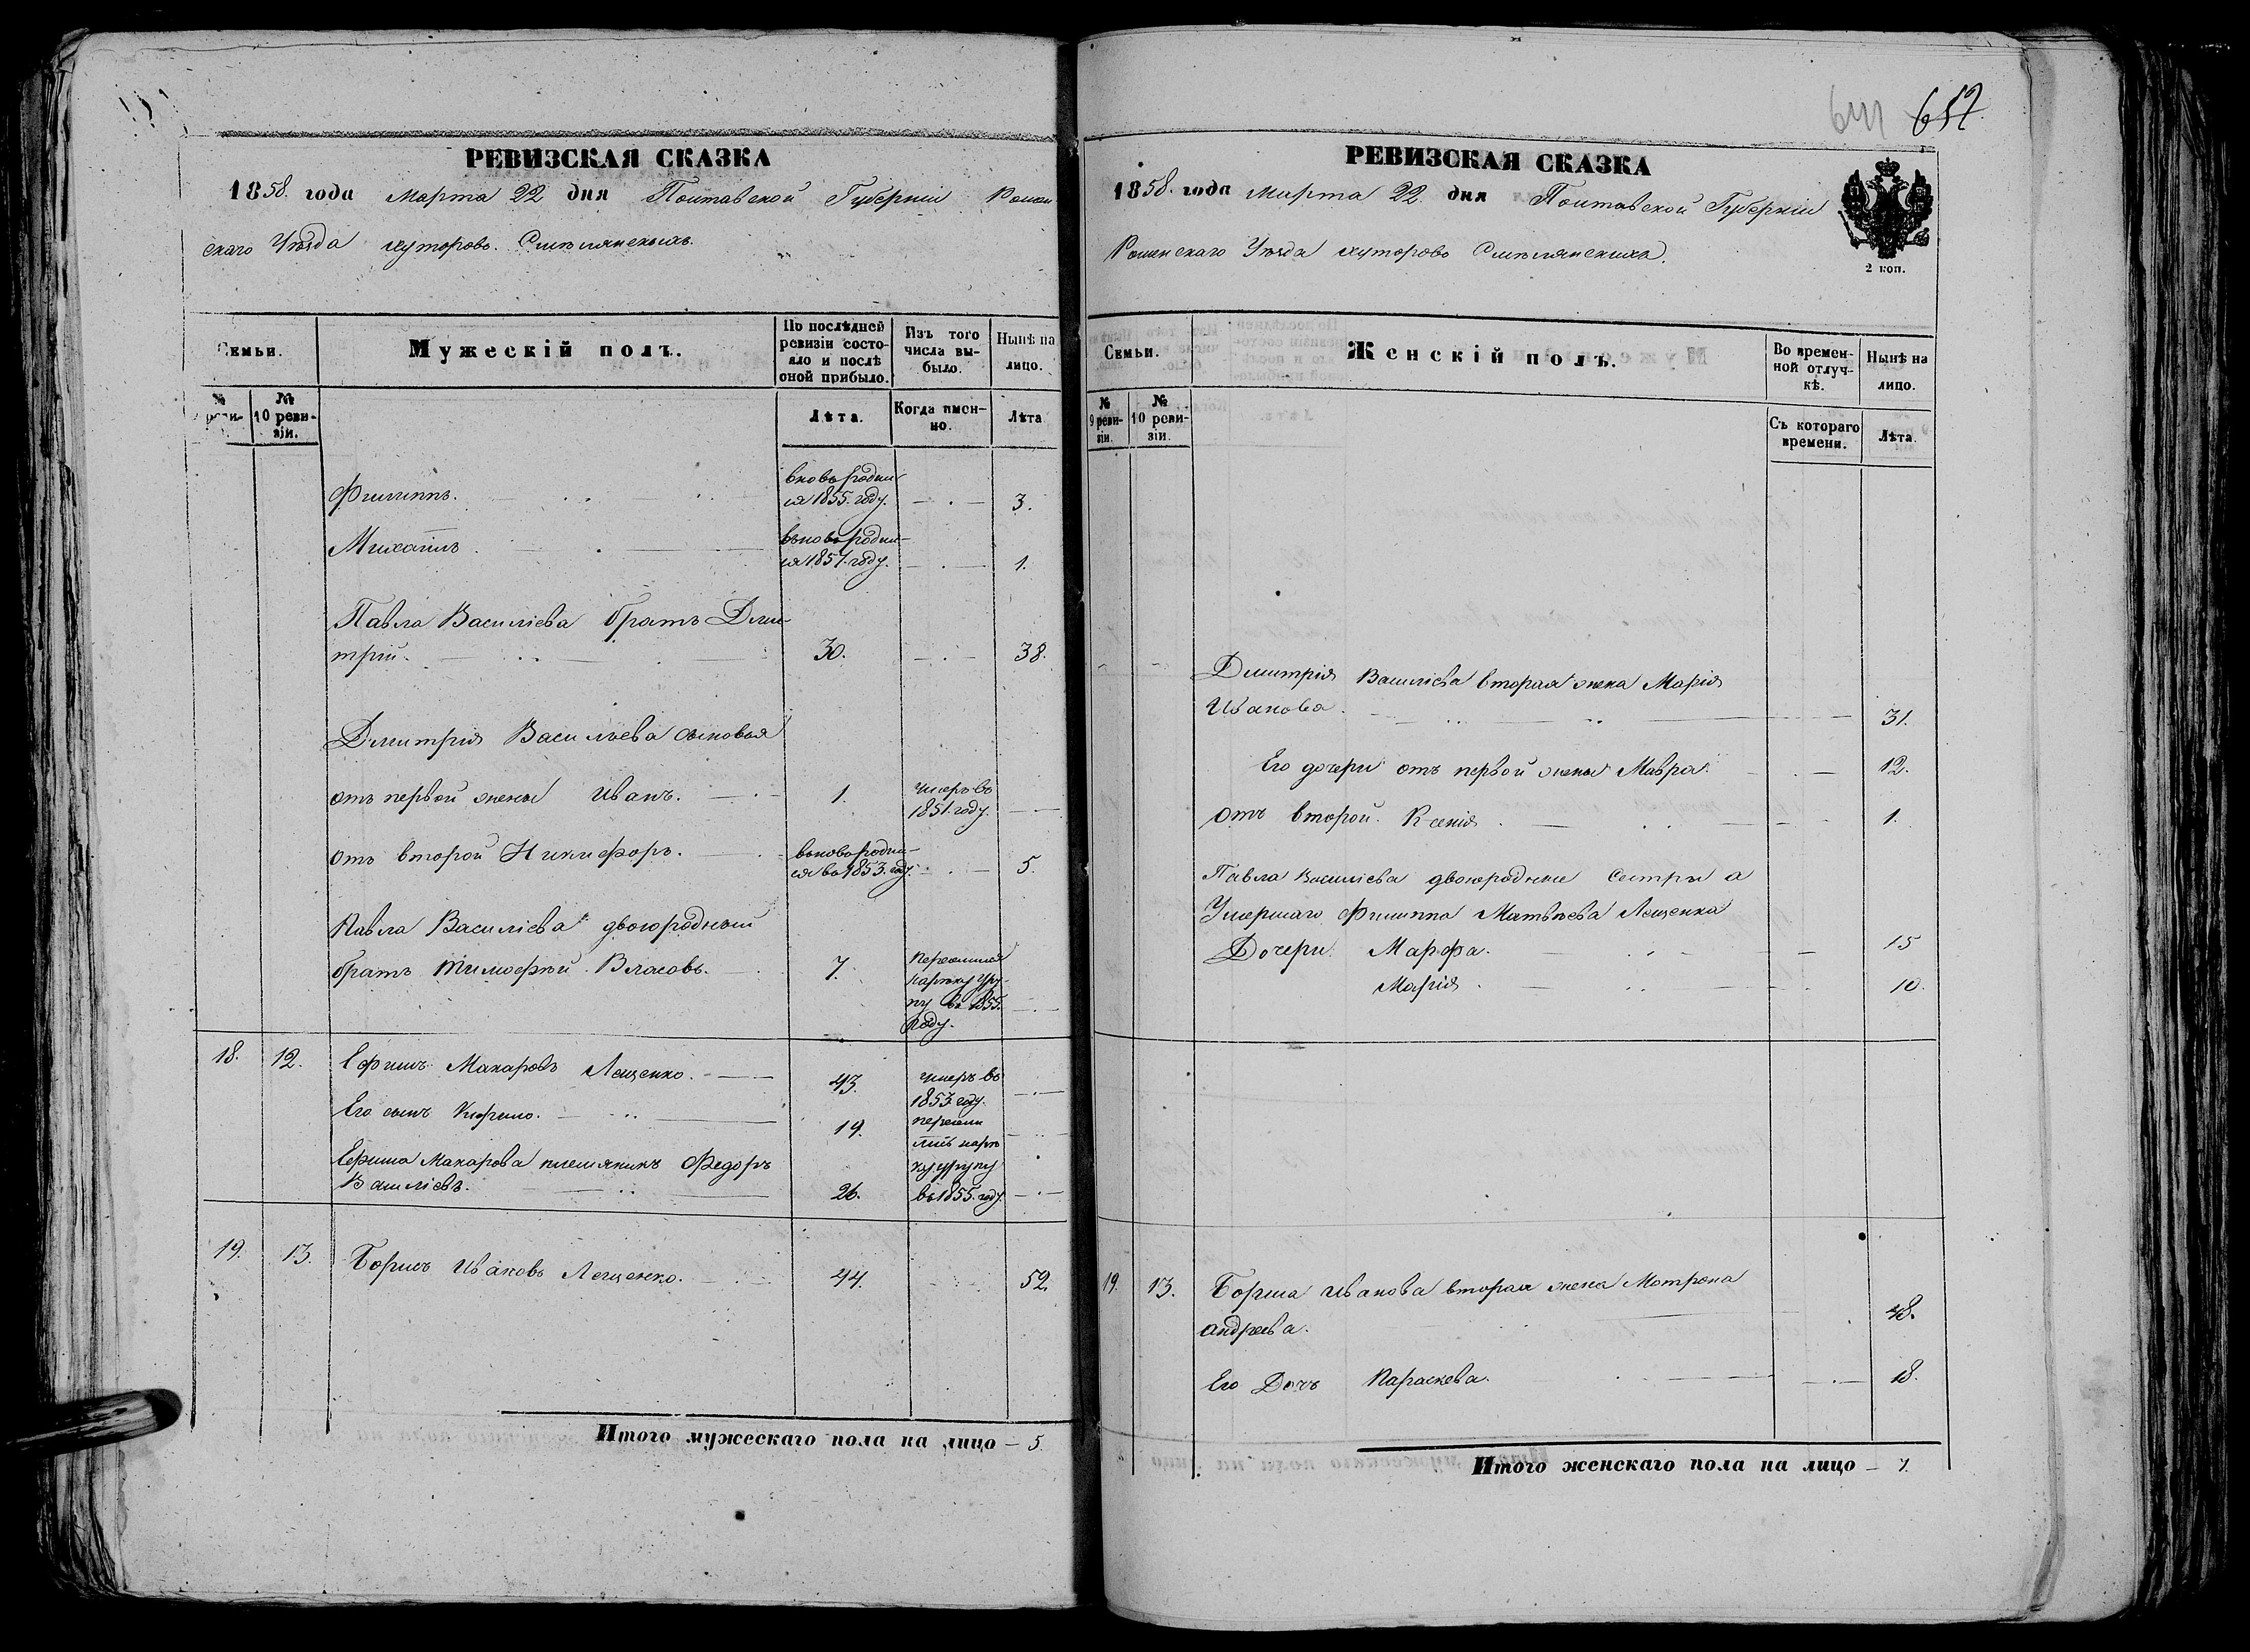 РЕВИЗСКАЯ СКАЗКА
1858. года Марта 22 дня Полтавской Губерніи Ромен
скаго Уѣзда хуторовъ Смѣлянскихъ.
Семьи.
Мужескій полъ.
По послѣдней ревизіи состо-
яло и послѣ
оной прибыло.
Изъ того
числа вы-
было.
Нынѣ на
лицо.
№
реви-
№
10 реви-
зіи.
Лѣта.
Когда имен-
но.
Лѣта
Филиппъ. вновь родил
ся 1855. году. 3.
Михаилъ. вьновь родил-
ся 1857. году. 1.
Павла Василіева братъ Дми-
трій. 30. 38.
Дмитрія Васильева сыновья
отъ первой жены Иванъ. 1. умеръ въ
1851. году.
отъ второй Никифоръ. вьновь родил-
ся въ 1853. году. 5.
Павла Василіева двоюродный
братъ Тимофѣй Власовъ. 7. 
въ 1855.
году.
18. 12. Ефимъ Макаровъ Лещенко. 43. умеръ въ
1853. году.
Его сынъ Кирило. 19.
Ефима Макарова племяникъ Федоръ
Василіевъ. 26. въ 1855. году.
19. 13. Борисъ Ивановъ Лещенко. 44. 52.
Итого мужескаго пола на лицо — 5.
657
РЕВИЗСКАЯ СКАЗКА
1858. года Марта 22. дня Полтавской Губерніи
Роменскаго Уѣзда хуторовъ Смѣлянскихъ.
2 коп.
Семьи.
Женскій полъ.
Во времен-
ной отлуч-
кѣ.
Нынѣ на
лицо.
№
9 реви-
зіи.
№
10 реви-
зіи.
Съ котораго
времени.
Лѣта.
Дмитрія Василіева вторая жена Марія
Иванова. 31.
Его дочери отъ первой жены Мавра. 12.
отъ второй. Ксенія. 1.
Павла Василіева двоюродные сестры а
Умершаго Филиппа Матвѣева Лещенка
Дочери Марфа. 15
Марія. 10.
19. 13. Бориса Иванова вторая жена Мотрона
Андреева. 48.
Его Дочь Параскева. 18.
Итого женскаго пола на лицо — 7.